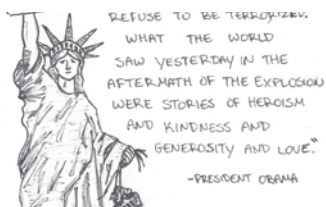 REFUSE TO BE TERRORIZED.
WHAT THE WORLD
SAW YESTERDAY IN THE
AFTERMATH OF THE EXPLOSION
WERE STORIES OF HEROISM
AND KINDNESS AND
GENEROSITY AND LOVE."
-PRESIDENT OBAMA